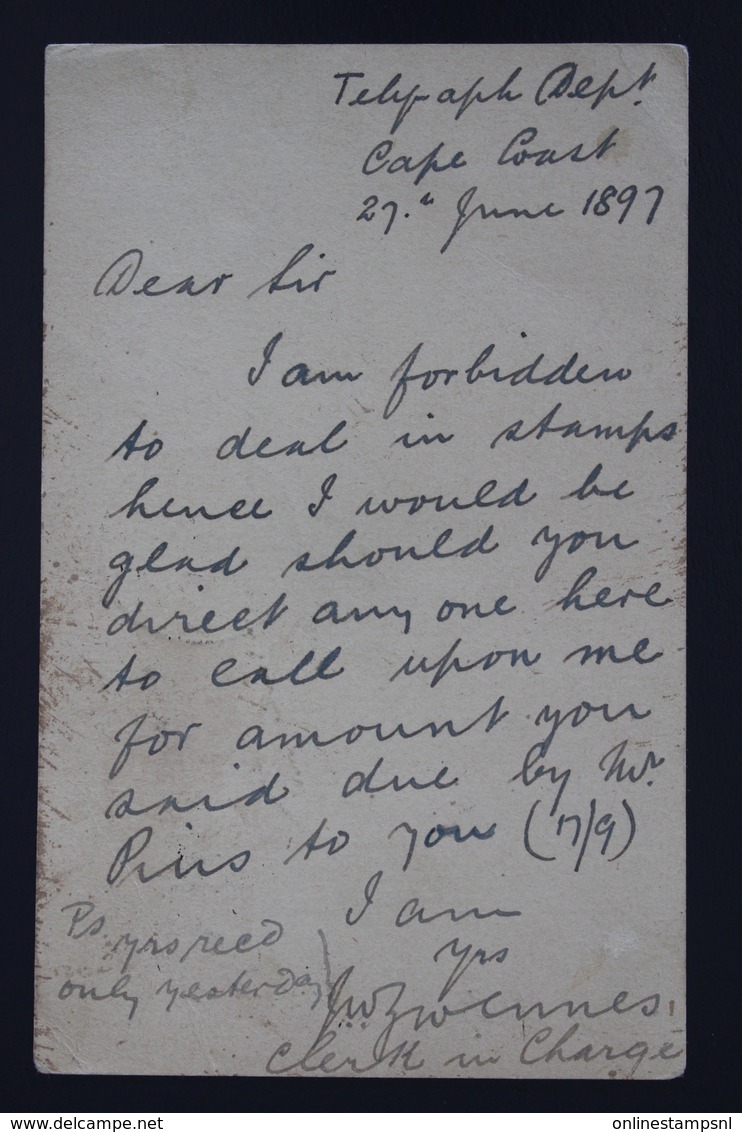 Telegraph Dept.
Cape Coast
27.th June 1897
Dear Sir
I am forbidden
to deal in stamps
hence I would be
glad should you
direct any one here
to call upon me
for amount you
said due by Mr.
Pius to you (17/9)
I am
yrs
Clerk in Charge
Ps. yrs recd
only yesterday
www.delcampe.net
onlinestampsnl